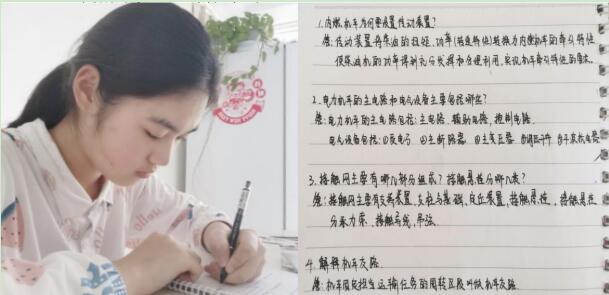 1.内燃机车为何要设置传动装置?
答:传动装置将柴油的扭矩、功率(转速特性)转换为内燃机车的牵引特性
使柴油机的功率得到充分发挥和合理利用,实现机车牵引特性的要求。
2.电力机车的主电路和电气设备主要包括哪些?
答:电力机车的主电路包括:主电路、辅助电路、控制电路.
电气设备包括:①受电弓 ②主断路器 ③主变压器
3.接触网主要有哪几部分组成?接触悬挂分哪几类?
答:接触网主要有支持装置、支柱与基础、定位装置、接触悬挂,接触悬挂
分承力索、接触导线、吊弦.
4.解释机车交路.
答:机车固定担当运输任务的周转区段叫做机车交路.